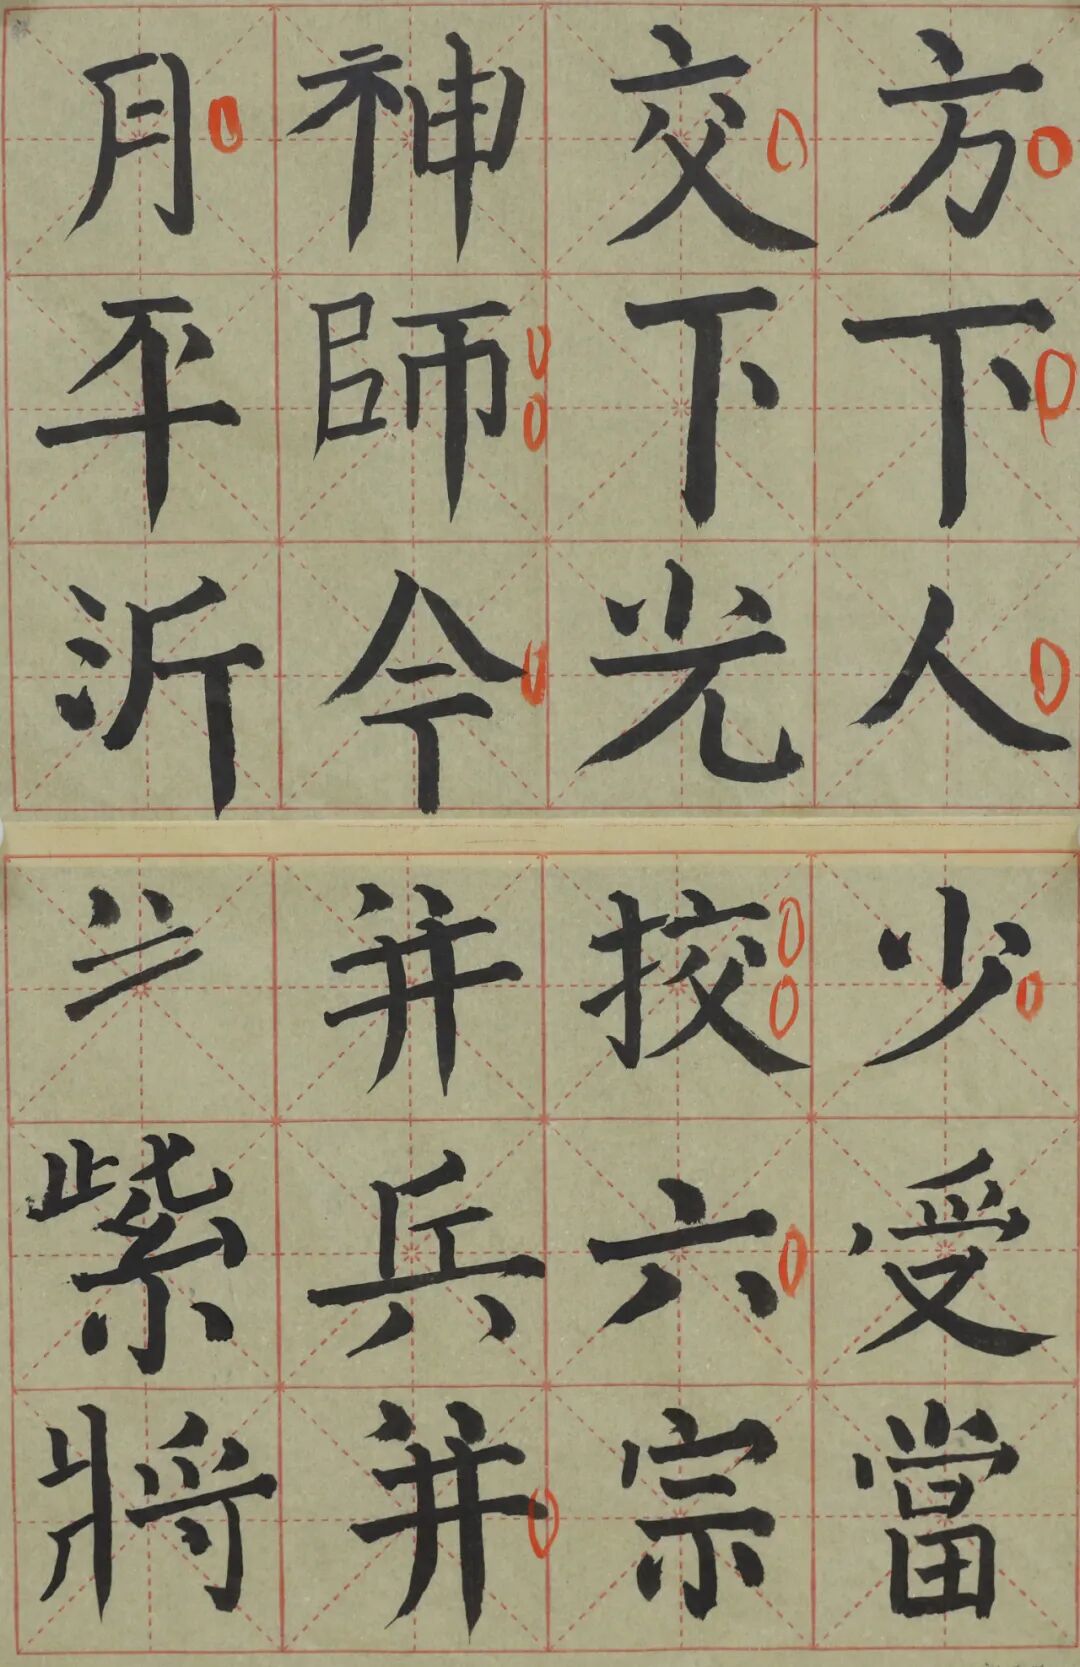 方下人
交下光
神師令
月平沂
少受當
挍六宗
并兵并
紫將